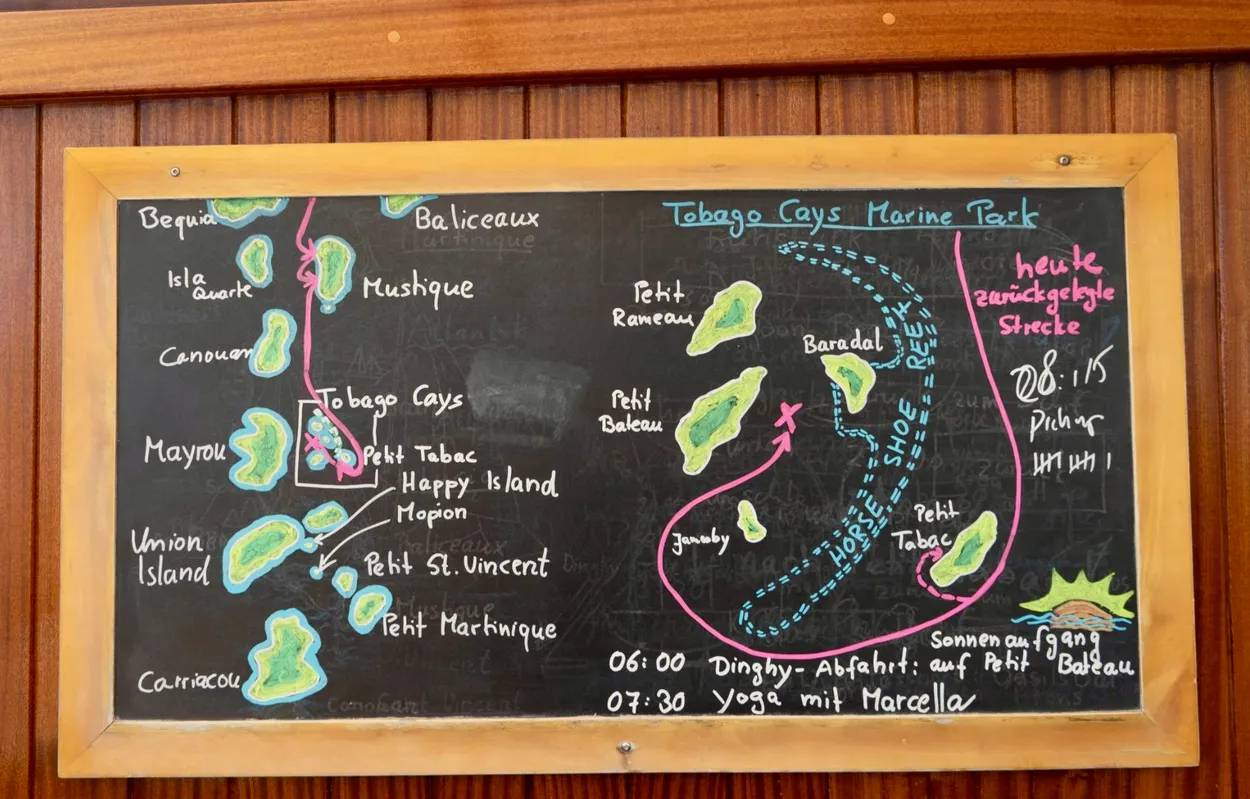 Bequia
Baliceaux
Isla
Quarte
Mustique
Canouan
Tobago Cays
Mayrou
Petit Tabac
Happy Island
Mopion
Union
Island
Petit St. Vincent
Petit Martinique
Carriacou
Tobago Cays Marine Park
heute
zurückgelegte
Strecke
Petit
Rameau
Baradal
08:15
Petit
Bateau
HORSE SHOE REEF
Petit
Tabac
Sonnenaufgang
06:00 Dinghy-Abfahrt: auf Petit Bateau
07:30 Yoga mit Marcella